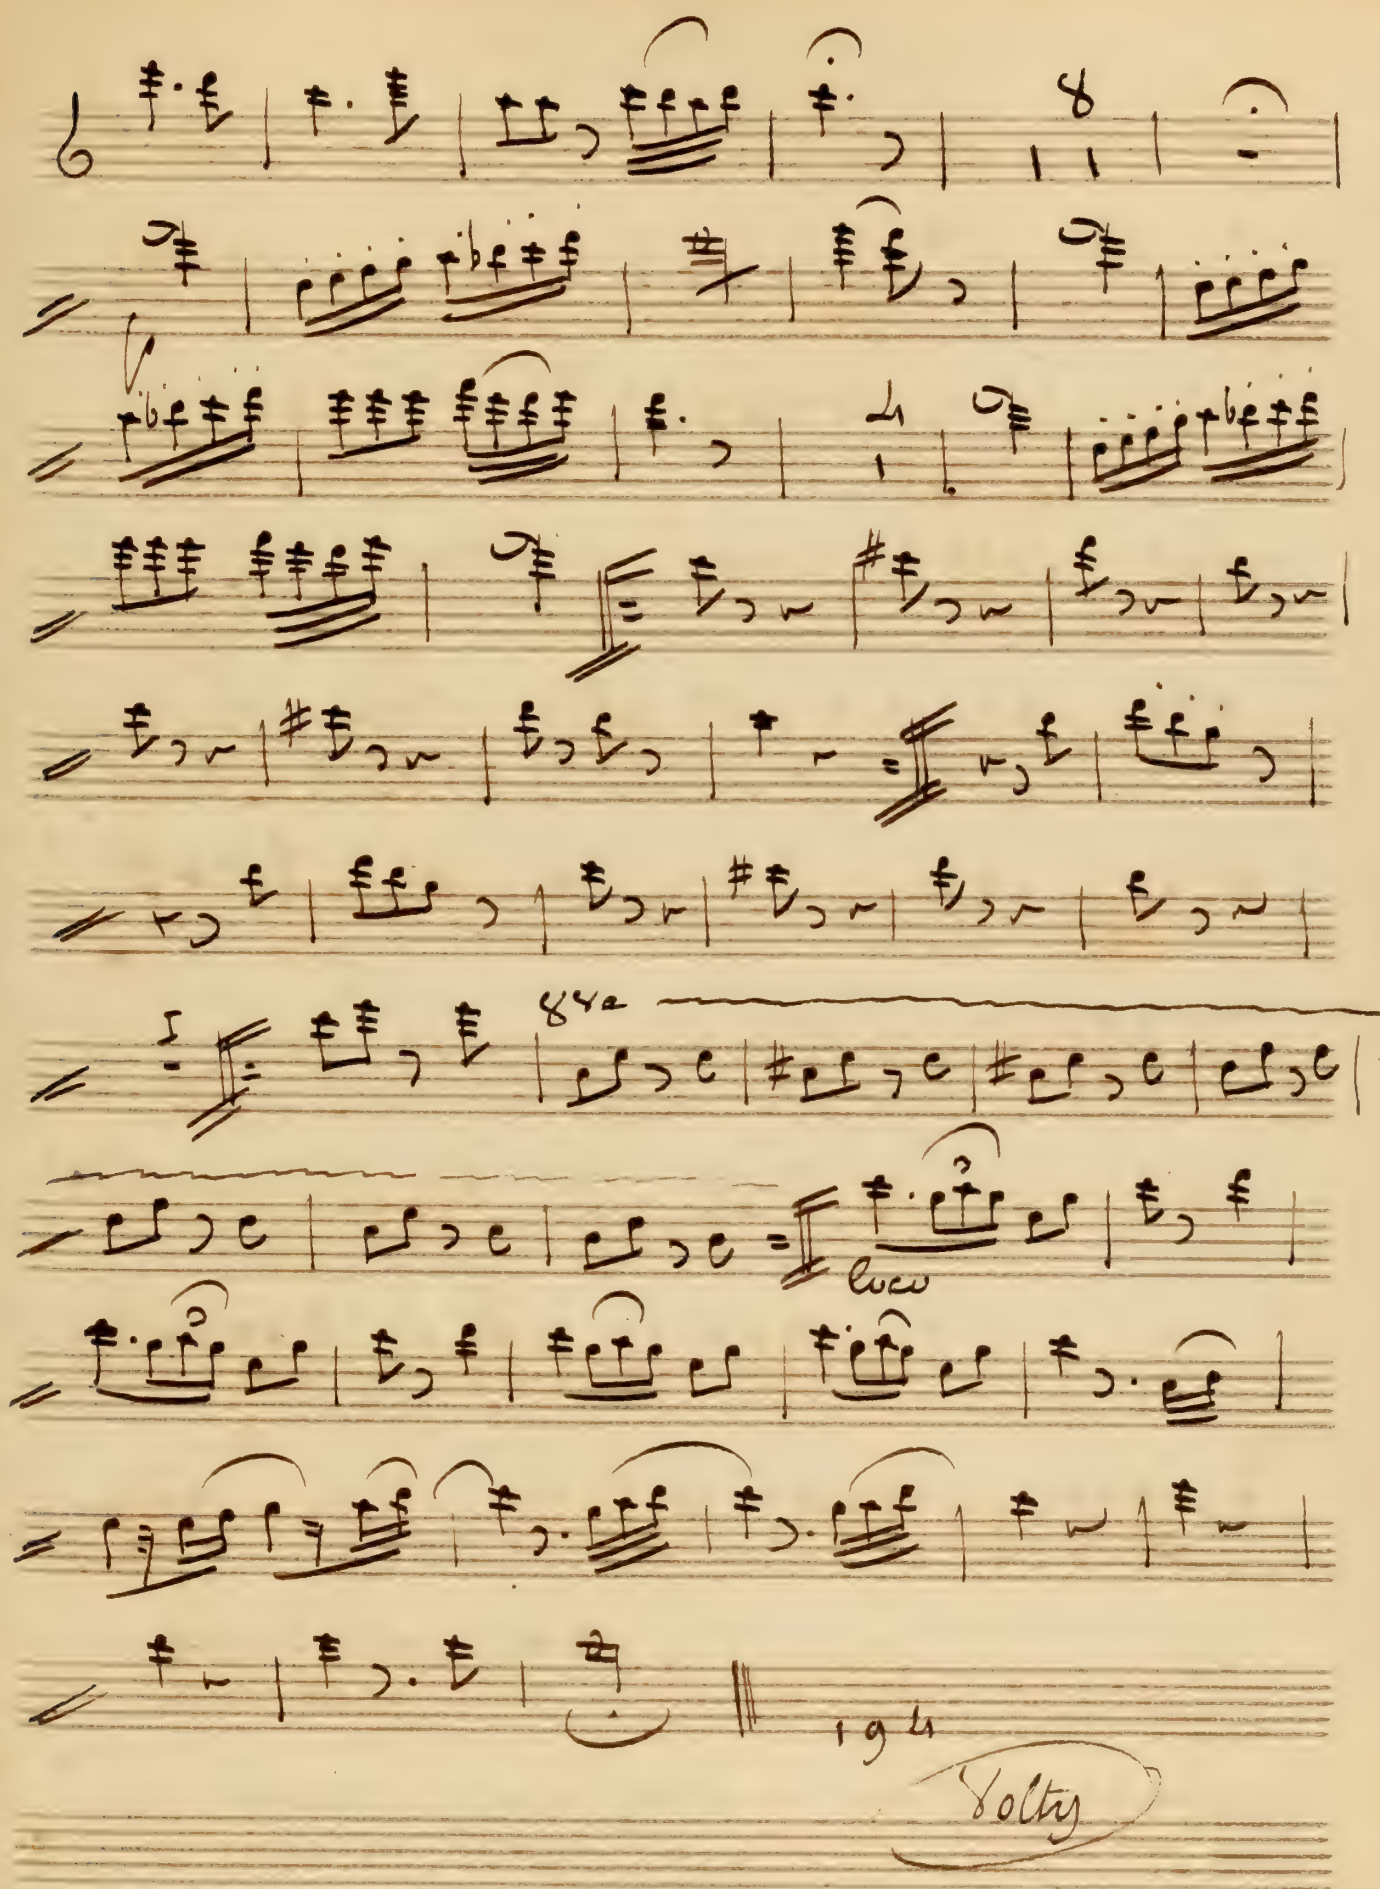 8
4
1
8va
3
loco
3
194
Volty